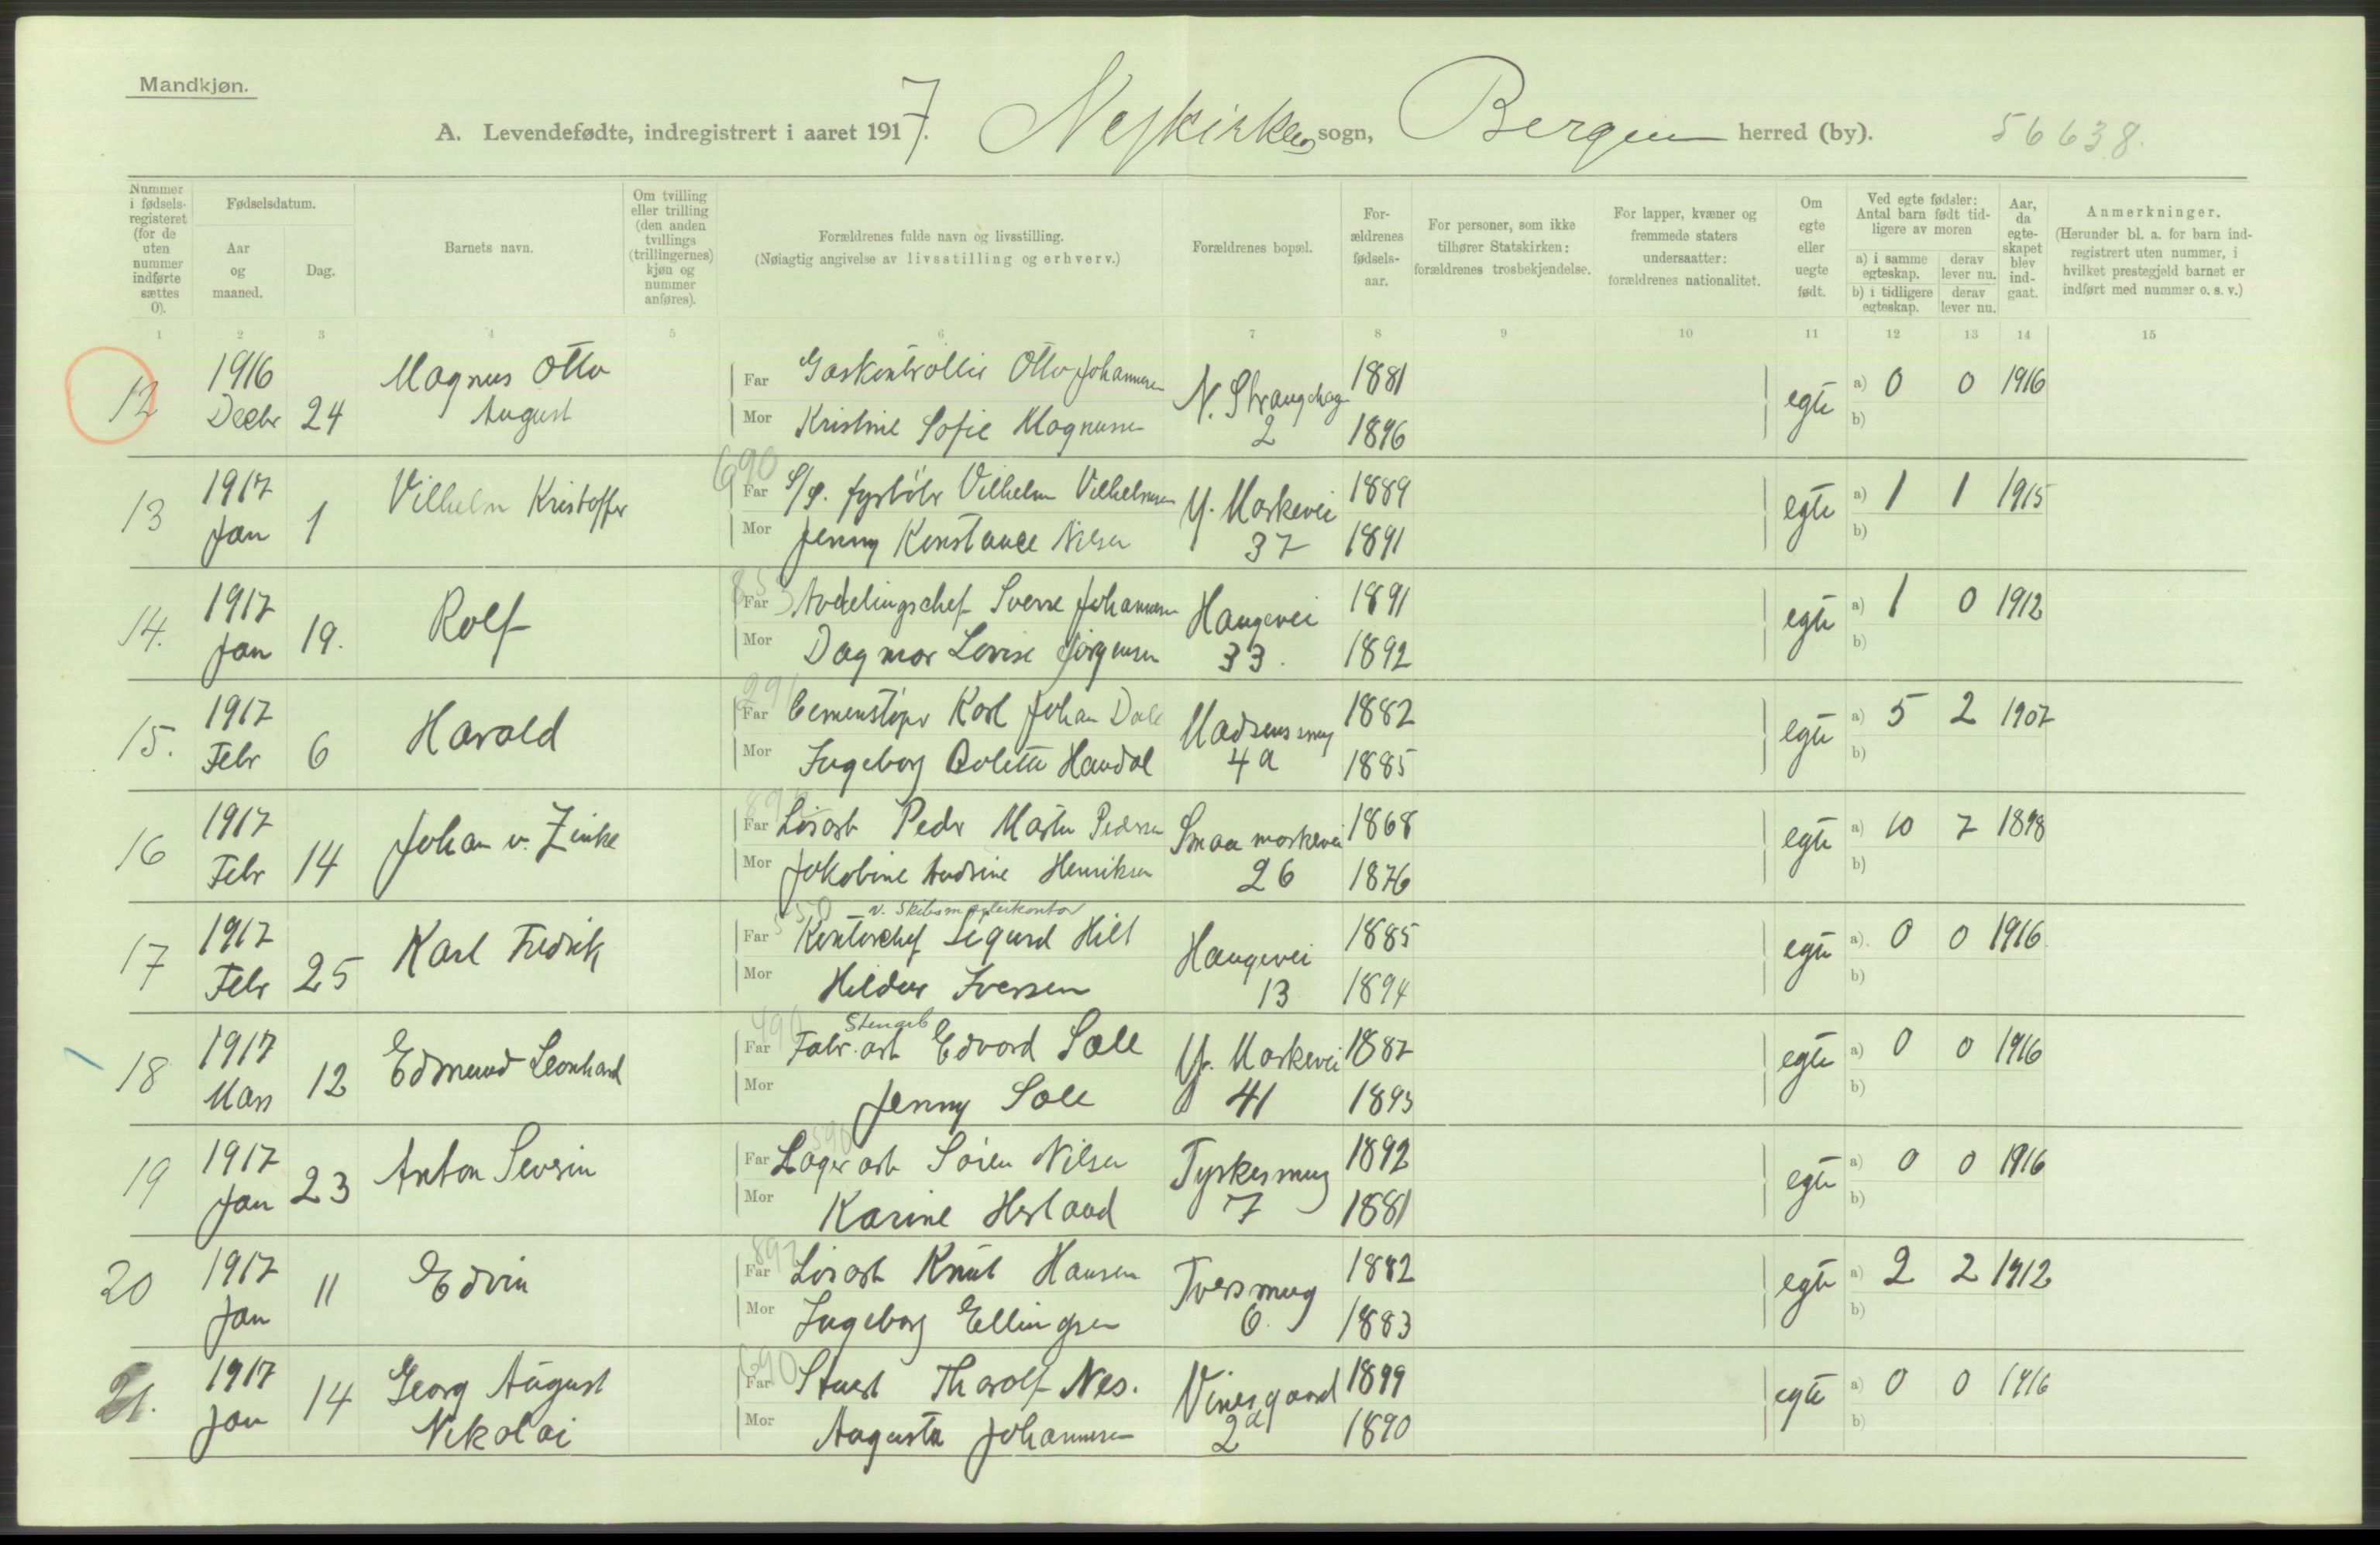 Mandkjøn.
A. Levendefødte, indregistrert i aaret 1917. Nykirkens sogn, Bergen herred (by). 56638.
Nummer i fødsels-registeret (for de uten nummer indførte sættes 0).
Fødselsdatum.
Aar og maaned.
Dag.
Barnets navn.
Om tvilling eller trilling (den anden tvillings (trillingernes) kjøn og nummer anføres).
Forældrenes fulde navn og livsstilling.
(Nøiagtig angivelse av livsstilling og erhverv.)
Forældrenes bopæl.
For-ældrenes fødsels-aar.
For personer, som ikke tilhører Statskirken: forældrenes trosbekjendelse.
For lapper, kvæner og fremmede staters undersaatter: forældrenes nationalitet.
Om egte eller uegte født.
Ved egte fødsler: Antal barn født tid-ligere av moren
a) i samme egteskap. derav lever nu.
b) i tidligere egteskap. derav lever nu.
Aar, da egte-skapet blev ind-gaat.
Anmerkninger.
(Herunder bl. a. for barn ind-registrert uten nummer, i hvilket prestegjeld barnet er indført med nummer o. s. v.)
1 2 3 4 5 6 7 8 9 10 11 12 13 14 15
12 1916 Decbr 24 Magnus Otto August
Far Gaskontrollør Otto Johannesen N. Strangehag 2 1881 egte a) 0 0 1916
Mor Kristine Sofie Magnussen 1896 b)
13 1917 Jan 1 Vilhelm Kristoffer
690
Far S/S. fyrbøter Vilhelm Vilhelmsen Y. Markevei 37 1889 egte a) 1 1 1915
Mor Jenny Konstance Nilsen 1891 b)
14. 1917 Jan 19. Rolf
Far Avdelingschef Sverre Johannesen Haugevei 33. 1891 egte a) 1 0 1912
Mor Dagmar Lovise Jørgensen 1892 b)
15. 1917 Febr 6 Harald
291
Far Cementstøper Karl Johan Dale Madsens smug 4a 1882 egte a) 5 2 1907
Mor Ingeborg Oolette Haudal 1885 b)
16 1917 Febr 14 Johan v. Zinke
Far Løsarb Peder Martin Pedersen Smaa markevei 26 1868 egte a) 10 7 1898
Mor Jakobine Andrine Henriksen 1876 b)
17 1917 Febr 25 Karl Fredrik
v. Skibsmæglerkontor
Far Kontorchef Sigurd Hilt Haugevei 13 1885 egte a) 0 0 1916
Mor Hildur Iversen 1894 b)
18 1917 Mars 12 Edmund Leonhard
490
Far Fabr. arb Edvard Sole Y. Markevei 41 1887 egte a) 0 0 1916
Mor Jenny Sole 1893 b)
19 1917 Jan 23 Anton Severin
590
Far Lagerarb Søren Nilsen Tyskesmug 7 1892 egte a) 0 0 1916
Mor Karine Hesland 1881 b)
20 1917 Jan 11 Edvin
892
Far Løsarb Knut Hansen Tversmug 6. 1882 egte a) 2 2 1912
Mor Ingeborg Ellingsen 1883 b)
21. 1917 Jan 14 Georg August Nikolai
690
Far Stuert Tharolf Nes. Vinesgaard 2d 1899 egte a) 0 0 1916
Mor Augusta Johannesen 1890 b)